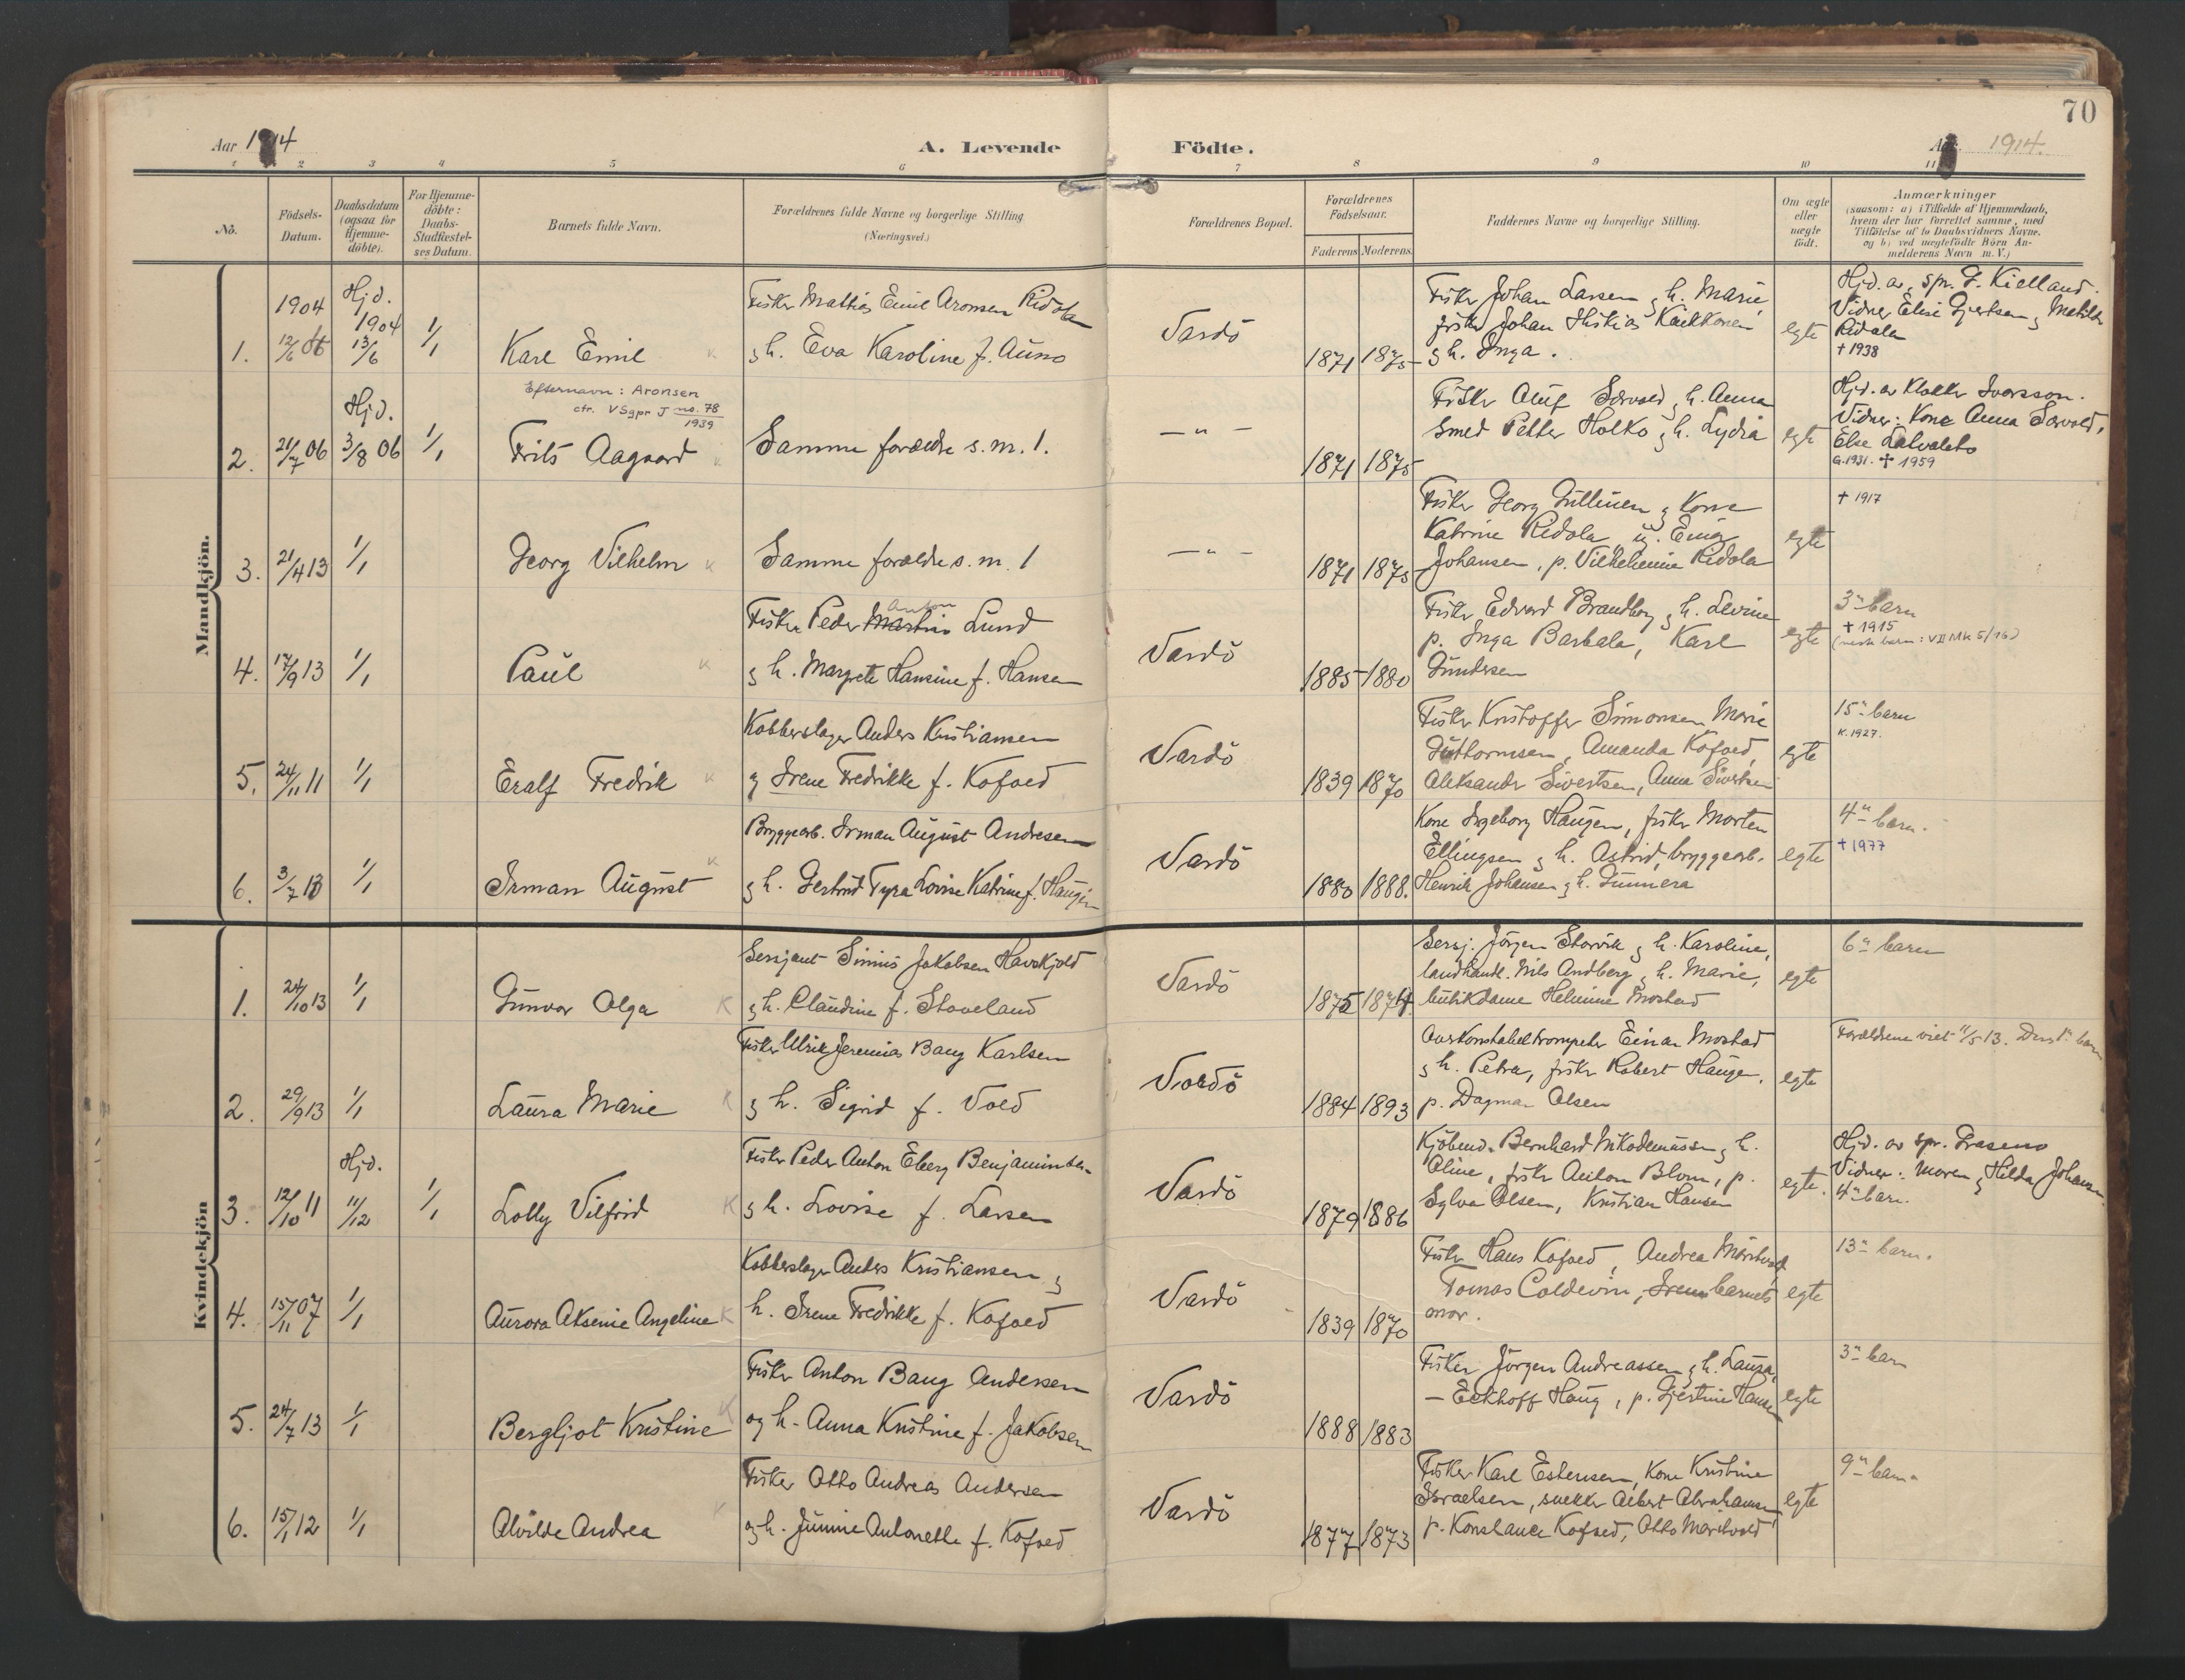 70
Aar 1914
A. Levende Födte.
Aar 1914.
1 2 3 4 5 6 7 8 9 10 11
No.
Födsels-Datum.
Daabsdatum (ogsaa for Hjemme-döbte).
For Hjemme-döbte: Daabs-Stadfæstel-ses Datum.
Barnets fulde Navn.
Forældrenes fulde Navne og borgerlige Stilling
(Næringsvei.)
Forældrenes Bopæl.
Forældrenes Födselsaar.
Faderens Moderens
Faddernes Navne og borgerlige Stilling.
Om ægte eller uægte födt.
Anmærkninger
(saasom: a) i Tilfælde af Hjemmedaab,
hvem der har forrettet samme, med
Tilföielse af to Daabsvidners Navne.
og b) ved uægtefödte Börn An-
melderens Navn m. V.)
Mandkjön.
1. 1904 12/6 Hjd. 1904 13/6 1/1
Karl Emil
Fisker Mathias Emil Aronsen Ridola
& h. Eva Karoline f. Auno
Vardö
1871 1875
Fisker Johan Larsen & h. Marie
fisker Johan Kækkonen
& h. Inga.
egte
Hjd. av spr. G. Kielland.
Vidner Elise Gjertsen & Matilde
Ridola
† 1938
Efternavn: Aronsen
cfr. VSgpr J no. 78
1939
2. 21/7 06 Hjd. 3/8 06 1/1
Frits Aagaard
Samme forældre s. m. 1.
— " —
1871 1875
Fisker Oluf Sørvold & h. Anna
Smed Petter Holko & h. Lydia
egte
Hjd. av Klokker Ivarsson.
Vidner: Kone Anna Sørvold,
Else
G. 1931. † 1959
3. 21/4 13 1/1
Georg Vilhelm
Samme forældre s. m. 1
— " —
1871 1875
Fisker Georg Gullinen & Kone
Katrine Ridola, u. Einar
Johansen, p. Vilhelmine Ridola
egte
† 1917
4. 17/9 13 1/1
Paul
Fisker Peder Martin Anton Lund
& h. Margrete Hansine f. Hansen
Vardö
1885 1880
Fisker Edvard Brandberg & h. Levine
p. Inga Barbala, Karl
Gundersen
egte
3die barn
† 1915
(neste barn: VII MK 5/16)
5. 24/11 11 1/1
Eralf Fredrik
Kobberslager Anders Kristiansen
& Irene Fredrikke f. Kofoed
Vardö
1839 1870
Fisker Kristoffer Simonsen, Marie
Guttormsen, Amanda Kofoed,
Aleksander Sivertsen, Anna Sivertsen
egte
15de barn
K. 1927.
6. 3/7 13 1/1
Irman August
Bryggearb. Irman August Andresen
& h. Gertrud Tyra Lovise Katrine f. Haugen
Vardö
1880 1888.
Kone Ingeborg Haugen, fisker Morten
Ellingsen & h. Astrid, bryggearb.
Henrik Johansen & h. Gunnera
egte
4de barn.
† 1977
Kvindekjön
1. 24/10 13 1/1
Gunvor Olga
Sersjant Simius Jakobsen Havskjold
& h. Claudine f. Stoveland
Vardö
1875 1874.
Sersj. Jörgen Storvik & h. Karoline,
landhandl. Nils Andberg & h. Marie,
butikdame Helmine Mostad
egte
6te barn
2. 29/9 13 1/1
Laura Marie
Fisker Ulrik Jeremias Bang Karlsen
& h. Sigrid f. Vold
Vardö
1884 1893
Overkonstabel trompeter Einar Mostad
& h. Petra, fisker Robert Haugen,
p. Dagmar Olsen
egte
Forældrene viet 11/5 13. barn
3. 12/10 11 Hjd. 11/12 1/1
Lolly Vilfrid
Fisker Peder Anton Eberg Benjaminsen
& h. Lovise f. Larsen
Vardö
1879 1886
Kjöbmd. Bernhard Nikodemussen & h.
Oline, fisker Anton Blom, p.
Sylva Olsen, Kristian Hansen
egte.
Hjd. av spr. Graseno
Vidner: Moren & Hilda Johansen
4de barn.
4. 15/11 07 1/1
Aurora Aksenie Angeline
Kobberslager Anders Kristiansen &
h. Irene Fredrikke f. Kofoed
Vardö
1839 1870
Fisker Hans Kofoed, Andrea
Tomas Coldevin, Irene barnets
mor.
egte
13de barn.
5. 24/7 13 1/1
Bergljot Kristine
Fisker Anton Baug Andersen
og h. Anna Kristine f. Jakobsen
Vardö
1888 1883
Fisker Jörgen Andreassen & h. Laura,
— Eckhoff Haug, p. Gjertine Hansen
egte
3die barn
6. 15/1 12 1/1
Alvilde Andrea
Fisker Otto Andreas Andersen
og h. Jünnie Antonette f. Kofoed
Vardö
1877 1873
Fisker Karl Estensen, Kone Kristine
Israelsen, snekker Albert Abrahamsen
p. Konstance Kofoed, Otto
egte
9de barn